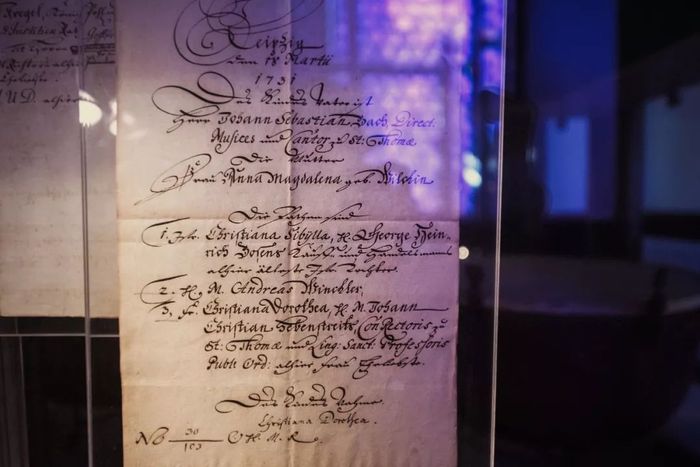 Kregel,
Leipzig
den 18 Martii
1731
Des Kindes Vater ist
Herr Johann Sebastian Bach Direct:
Musices und Cantor zu St: Thomæ
Die Mutter
Frau Anna Magdalena geb. Wilckin
Die Pathen sind
1. Jfr. Christiana Sibylla, H. George Hein-
rich Bosens Kauff- und Handelsmanns
alhier älteste Jfr. Tochter.
2. H. M. Andreas Winckler,
3. F. Christiana Dorothea, H. M. Johann
Christian Hebenstreits, ConRectoris zu
St: Thomæ und Ling: Sanct: Professoris
Publ: Ord: alhier Frau Eheliebste.
Des Kindes Nahme
Christiana Dorothea.
No 30
103
U.D. alhier